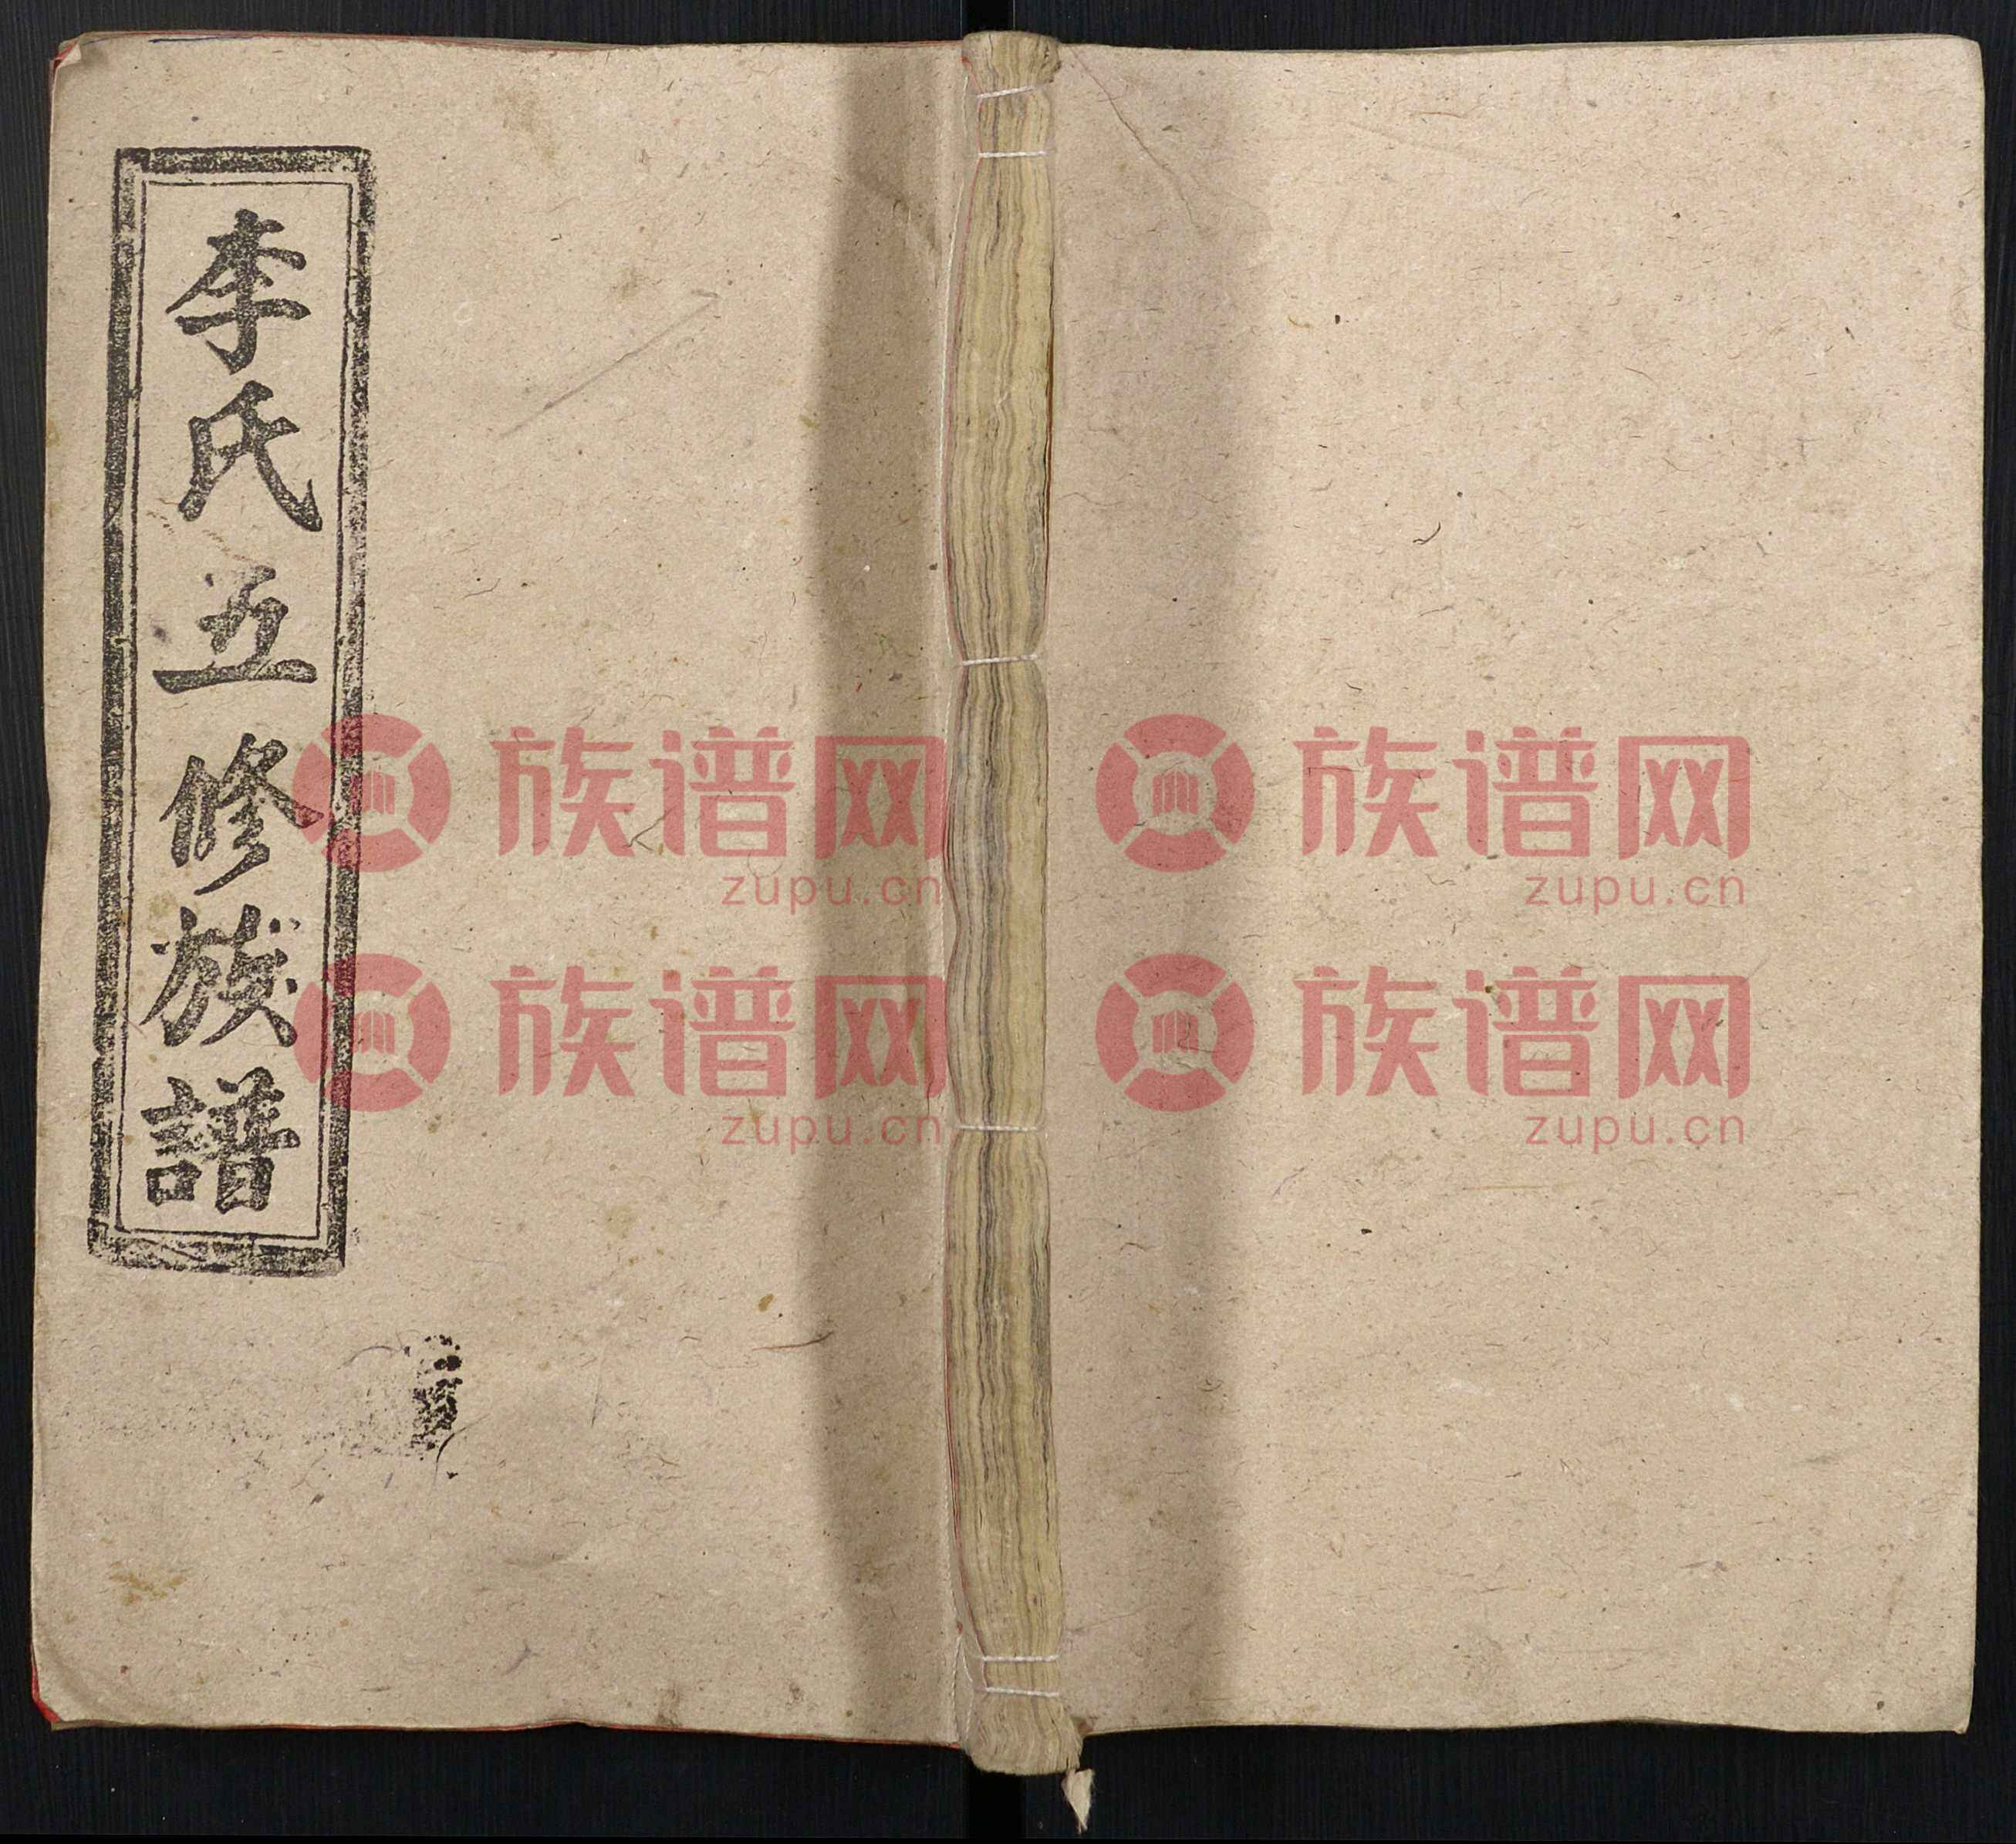 李氏五修族譜
族谱网 族谱网
zupu.cn zupu.cn
族谱网 族谱网
zupu.cn zupu.cn